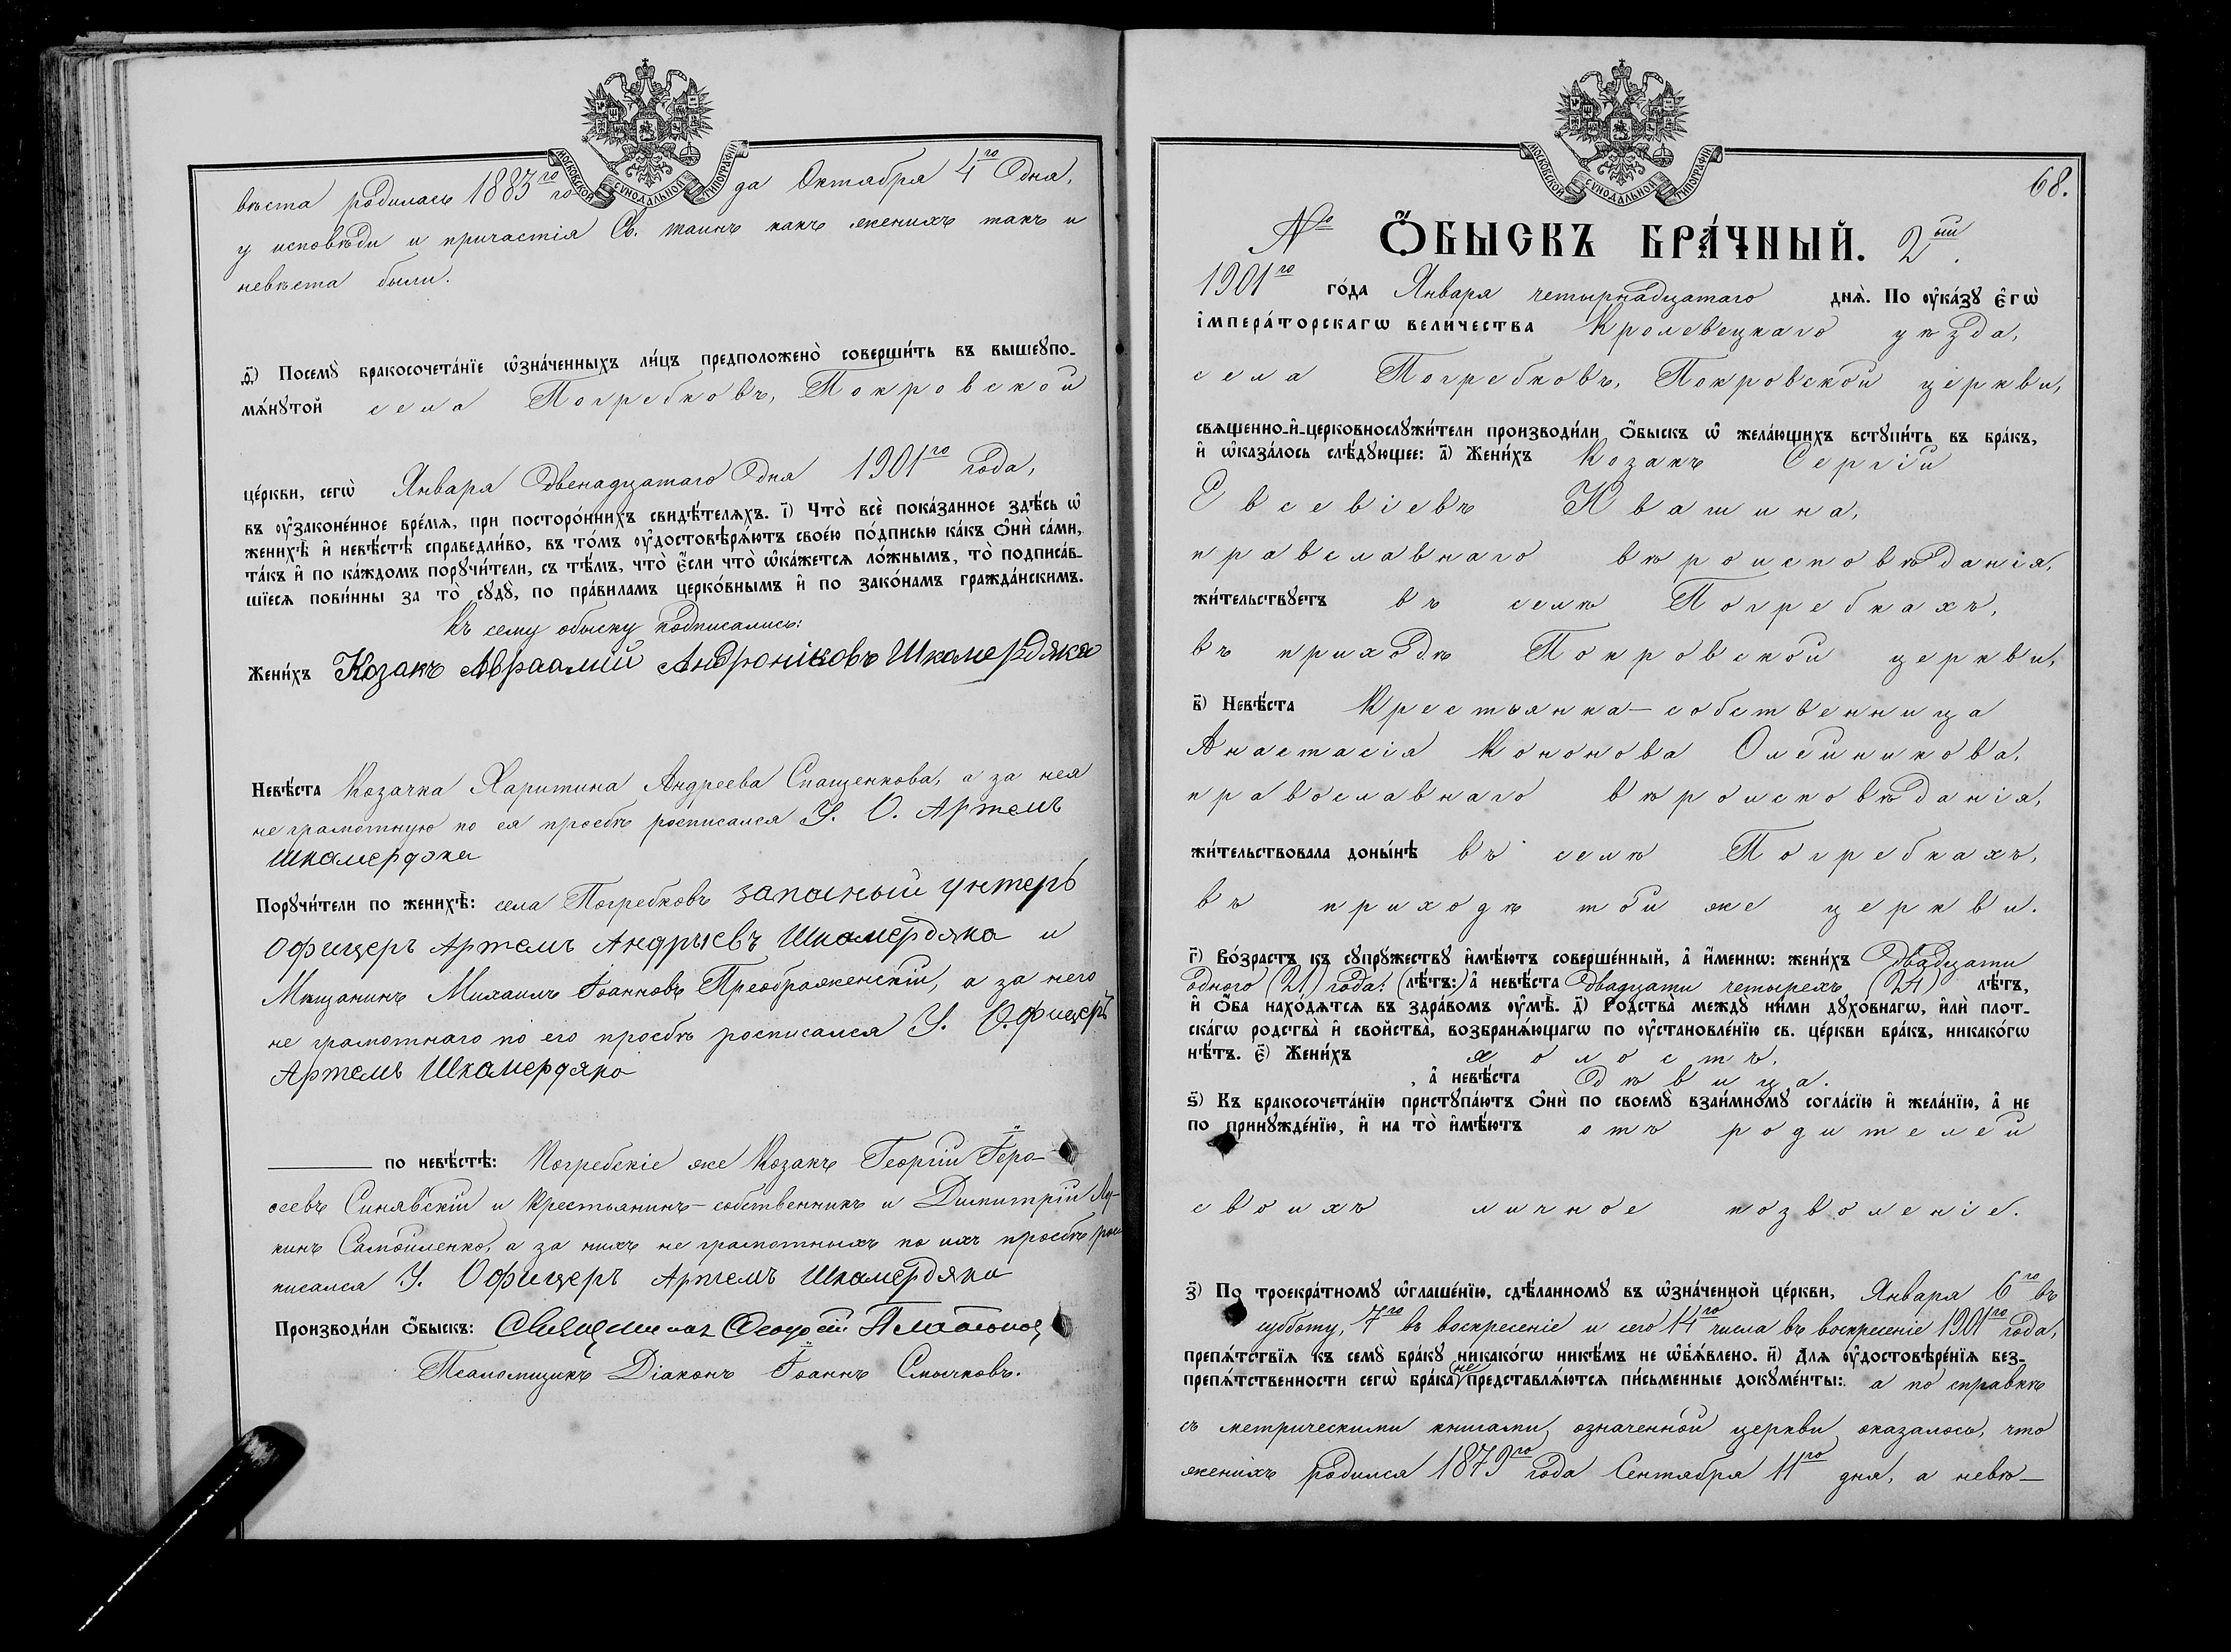 МОСКОВСКОЙ СѴНОДАЛЬНОЙ ТИПОГРАФІИ
вѣста родилась 1883го го да Октября 4го дня,
у исповѣди и причастія Св. таинъ какъ женихъ такъ и
невѣста были.
ѳ҃) Посемꙋ̀ бракосочета́нїе ѡ҆зна́ченныхъ ли́цъ предположено̀ соверши́ть въ вышеꙋпо-
мѧ́нꙋтой села Погребковъ, Покровской
це́ркви, сегѡ̀ Января двенадцатаго дня 1901го года,
въ ᲂу҆законе́нное вре́мѧ, при посторо́ннихъ свидѣ́телѧхъ. і҃) Что̀ всѐ пока́занное здѣ́сь ѡ҆
женихѣ̀ и҆ невѣ́стѣ справедли́во, въ то́мъ ᲂу҆достовѣрѧ́ютъ свое́ю по́дписью ка́къ ѻ҆нѝ са́ми,
та́къ и҆ по ка́ждомъ порꙋчи́тели, съ тѣ́мъ, что̀ є҆́сли что̀ ѡ҆ка́жетсѧ ло́жнымъ, то̀ подписа́в-
шїесѧ пови́нны за то̀ сꙋдꙋ̀, по пра́виламъ церко́внымъ и҆ по зако́намъ гражда́нскимъ.
къ сему обыску подписались:
Жени́хъ Козакъ Авраамій Андроніковъ Шкамердяка
Невѣ́ста Козачка Харитина Андреева Спащенкова, а за нея
не грамотную по ея просьбѣ росписался У. О. Артемъ
Шкамердяка
Порꙋчи́тели по женихѣ̀: села Погребковъ запасный унтеръ
Офицеръ Артемъ Андрѣевъ Шкамердяка и
Мѣщанинъ Михаилъ Іоанновъ Преображенскій, а за него
не грамотнаго по его просьбѣ росписался У. Офицеръ
Артемъ Шкамердяка
по невѣ́стѣ: Погребскіе же Козакъ Георгій Гера-
сеевъ Синявскій и Крестьянинъ-собственникъ и Димитрій Лу-
кинъ Самойленко, а за нихъ не грамотныхъ по ихъ просьбѣ рос
писался У. Офицеръ Артемъ Шкамердяка
Производи́ли ѻ҆́быскъ: Священникъ Ѳеодосій Платонов
Псаломщикъ Діаконъ Іоаннъ Смычковъ.
МОСКОВСКОЙ СѴНОДАЛЬНОЙ ТИПОГРАФІИ
68.
№ Ѻ҆́БЫСКЪ БРА́ЧНЫЙ. 2ый.
1901го го́да Января четырнадцатаго днѧ̀. По ᲂу҆ка́зꙋ є҆гѡ̀
і҆мпера́торскагѡ вели́чества Кролевецкаго уѣзда,
села Погребковъ, Покровской церкви,
свѧщенно-и҆-церковнослꙋжи́тели производи́ли ѻ҆́быскъ ѡ҆ жела́ющихъ встꙋпи́ть въ бра́къ,
и҆ ѡ҆каза́лось слѣ́дꙋющее: а҃) Жени́хъ Козакъ Сергій
Евсевіевъ Квашина,
православнаго вѣроисповѣданія,
жи́тельствꙋетъ въ селѣ Погребкахъ,
въ приходѣ Покровской церкви,
в҃) Невѣ́ста Крестьянка-собственница
Анастасія Кононова Олейникова,
православнаго вѣроисповѣданія,
жи́тельствовала доны́нѣ въ селѣ Погребкахъ,
въ приходѣ той же церкви.
г҃) Во́зрастъ къ сꙋпрꙋ́жествꙋ и҆мѣ́ютъ соверше́нный, а҆ и҆́меннѡ: жени́хъ Двадцати
одного (21) года: (лѣ́тъ:) а҆ невѣ́ста Двадцати четырехъ (24) лѣ́тъ,
и҆ ѻ҆́ба нахо́дѧтсѧ въ здра́вомъ ᲂу҆мѣ̀. д҃) Родства̀ междꙋ̀ ни́ми дꙋхо́внагѡ, и҆лѝ плот-
ска́гѡ родства̀ и҆ сво́йства, возбранѧ́ющагѡ по ᲂу҆становле́нїю св. це́ркви бра́къ, никако́гѡ
нѣ́тъ. є҃) Жени́хъ холостъ,
, а҆ невѣ́ста дѣвица.
ѕ҃) Къ бракосочета́нїю пристꙋпа́ютъ ѻ҆нѝ по своемꙋ̀ взаи́мномꙋ согла́сїю и҆ жела́нїю, а҆ не
по принꙋжде́нїю, и҆ на то̀ и҆мѣ́ютъ отъ родителей
своихъ личное позволеніе.
з҃) По троекра́тномꙋ ѡ҆глаше́нїю, сдѣ́ланномꙋ въ ѡ҆зна́ченной це́ркви, Января 6го въ
субботу, 7го въ воскресеніе и сего 14го числа въ воскресеніе 1901го года,
препѧ́тствїѧ къ семꙋ̀ бра́кꙋ никако́гѡ никѣ́мъ не ѡ҆б̾ѧ́влено. и҃) Длѧ ᲂу҆достовѣре́нїѧ без-
препѧ́тственности сегѡ̀ бра́ка не представлѧ́ютсѧ пи́сьменные докꙋме́нты: а по справкѣ
съ метрическими книгами означенной церкви оказалось, что
женихъ родился 1879го года Сентября 11го дня, а невѣ-